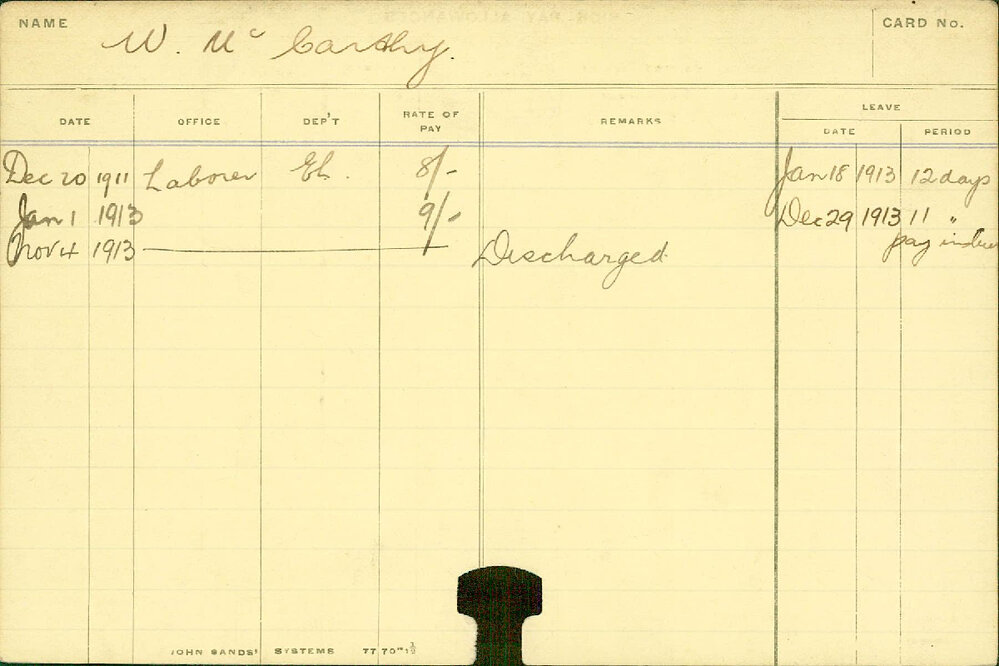 NAME W. Mc Carthy. CARD No.
LEAVE
DATE OFFICE DEP'T RATE OF PAY REMARKS DATE PERIOD
Dec 20 1911 Laborer El. 8/- Jan 18 1913 12 days
Jan 1 1913 9/- Dec 29 1913 11 "
Nov 4 1913 Discharged pay in
JOHN SANDS' SYSTEMS 77 70"